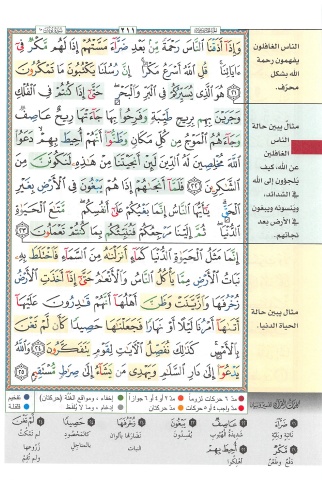 ٢١١
وَإِذَآ أَذَقْنَا ٱلنَّاسَ رَحْمَةً مِّنۢ بَعْدِ ضَرَّآءَ مَسَّتْهُمْ إِذَا لَهُم مَّكْرٌ فِىٓ
ءَايَاتِنَا ۚ قُلِ ٱللَّهُ أَسْرَعُ مَكْرًا ۚ إِنَّ رُسُلَنَا يَكْتُبُونَ مَا تَمْكُرُونَ
٢١ هُوَ ٱلَّذِى يُسَيِّرُكُمْ فِى ٱلْبَرِّ وَٱلْبَحْرِ ۖ حَتَّىٰٓ إِذَا كُنتُمْ فِى ٱلْفُلْكِ
وَجَرَيْنَ بِهِم بِرِيحٍ طَيِّبَةٍ وَفَرِحُوا۟ بِهَا جَآءَتْهَا رِيحٌ عَاصِفٌ
وَجَآءَهُمُ ٱلْمَوْجُ مِن كُلِّ مَكَانٍ وَظَنُّوٓا۟ أَنَّهُمْ أُحِيطَ بِهِمْ ۙ دَعَوُا۟
ٱللَّهَ مُخْلِصِينَ لَهُ ٱلدِّينَ لَئِنْ أَنجَيْتَنَا مِنْ هَـٰذِهِۦ لَنَكُونَنَّ مِنَ
ٱلشَّـٰكِرِينَ ٢٢ فَلَمَّآ أَنجَىٰهُمْ إِذَا هُمْ يَبْغُونَ فِى ٱلْأَرْضِ بِغَيْرِ
ٱلْحَقِّ ۗ يَـٰٓأَيُّهَا ٱلنَّاسُ إِنَّمَا بَغْيُكُمْ عَلَىٰٓ أَنفُسِكُم ۖ مَّتَـٰعَ ٱلْحَيَوٰةِ
ٱلدُّنْيَا ۖ ثُمَّ إِلَيْنَا مَرْجِعُكُمْ فَنُنَبِّئُكُم بِمَا كُنتُمْ تَعْمَلُونَ ٢٣
إِنَّمَا مَثَلُ ٱلْحَيَوٰةِ ٱلدُّنْيَا كَمَآءٍ أَنزَلْنَـٰهُ مِنَ ٱلسَّمَآءِ فَٱخْتَلَطَ بِهِۦ
نَبَاتُ ٱلْأَرْضِ مِمَّا يَأْكُلُ ٱلنَّاسُ وَٱلْأَنْعَـٰمُ حَتَّىٰٓ إِذَآ أَخَذَتِ ٱلْأَرْضُ
زُخْرُفَهَا وَٱزَّيَّنَتْ وَظَنَّ أَهْلُهَآ أَنَّهُمْ قَـٰدِرُونَ عَلَيْهَآ
أَتَىٰهَآ أَمْرُنَا لَيْلًا أَوْ نَهَارًا فَجَعَلْنَـٰهَا حَصِيدًا كَأَن لَّمْ تَغْنَ
بِٱلْأَمْسِ ۚ كَذَٰلِكَ نُفَصِّلُ ٱلْـَٔايَـٰتِ لِقَوْمٍ يَتَفَكَّرُونَ ٢٤ وَٱللَّهُ
يَدْعُوٓا۟ إِلَىٰ دَارِ ٱلسَّلَـٰمِ وَيَهْدِى مَن يَشَآءُ إِلَىٰ صِرَٰطٍ مُّسْتَقِيمٍ ٢٥
الناس الغافلون
يفهمون رحمة
الله بشكل
محرّف.
مثال يبين حالة
الناس
الغافلين
عن الله، كيف
يلجؤون إلى الله
في الشدائد،
وينسونه ويبغون
في الأرض بعد
نجاتهم.
مثال يبين حالة
الحياة الدنيا.
مدّ ٦ حركات لزوماً مدّ ٢ أو ٤ أو ٦ جوازاً إخفاء، ومواقع الغنّة (حركتان) تفخيم
مدّ واجب ٤ أو ٥ حركات مدّ حركتان إدغام، وما لا يُلفظ قلقلة
ضَرَّآءَ
نائبة وبليّة
مَّكْرٌ
دفع وطعن
عَاصِفٌ
شديدة الهبوب
أُحِيطَ بِهِمْ
أُهلكوا
يَبْغُونَ
يفسدون
زُخْرُفَهَا
نضارتها بألوان
النبات
حَصِيدًا
كالمحصود
بالمناجل
لَّمْ تَغْنَ
لم تمكث
زروعها
ولم تُقم